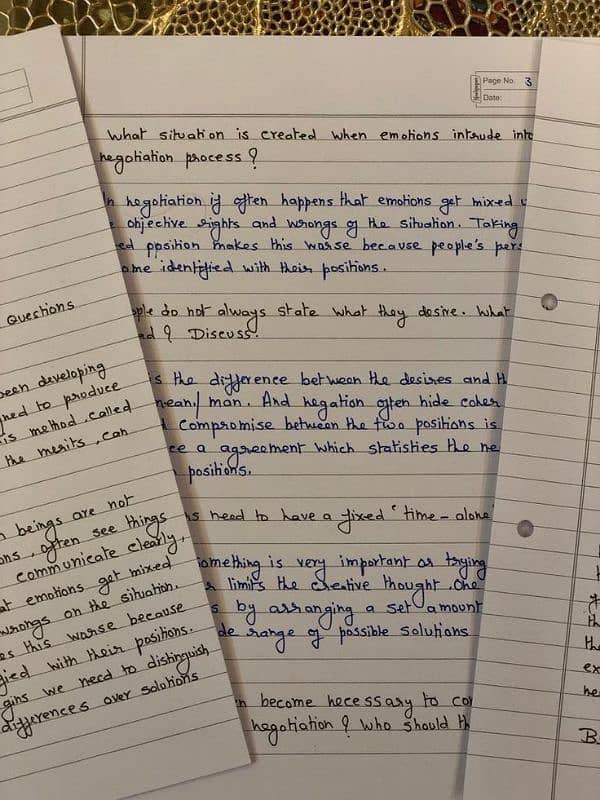 Page No. 3
Date:
What situation is created when emotions intrude into
negotiation process?
negotiation if often happens that emotions get mixed
objective rights and wrongs of the situation. Taking
ppsition makes this worse because people's
identified with their positions.
do not always state what they desire. What
? Discuss.
is the difference between the desires and
mean/ man. And negation often hide
compromise between the two positions is
a agreement which statisties the
positions.
need to have a fixed 'time - alone'
something is very important or trying
limits the creative thought. One
by arranging a set amount
range of possible solutions
become necessary to
negotiation? Who should
Questions
been developing
to produce
is method, called
the merits, can
beings are not
often see things
communicate clearly,
emotions get mixed
wrongs on the situation.
this worse because
with their positions.
we need to distinguish
differences over solutions
th
the
ex
he
B